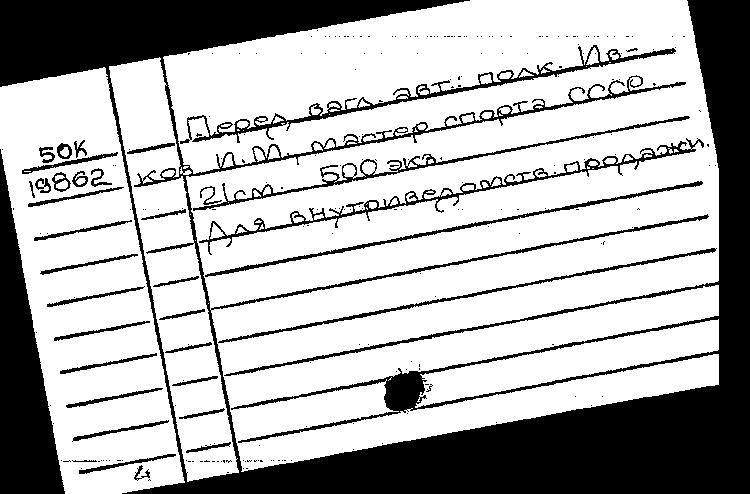 Перед загл. авт.: полк. Ив-
50К
19862 ков И.М., мастер спорта СССР.
21см. 500 экз.
Для внутриведомств. продажи.
4